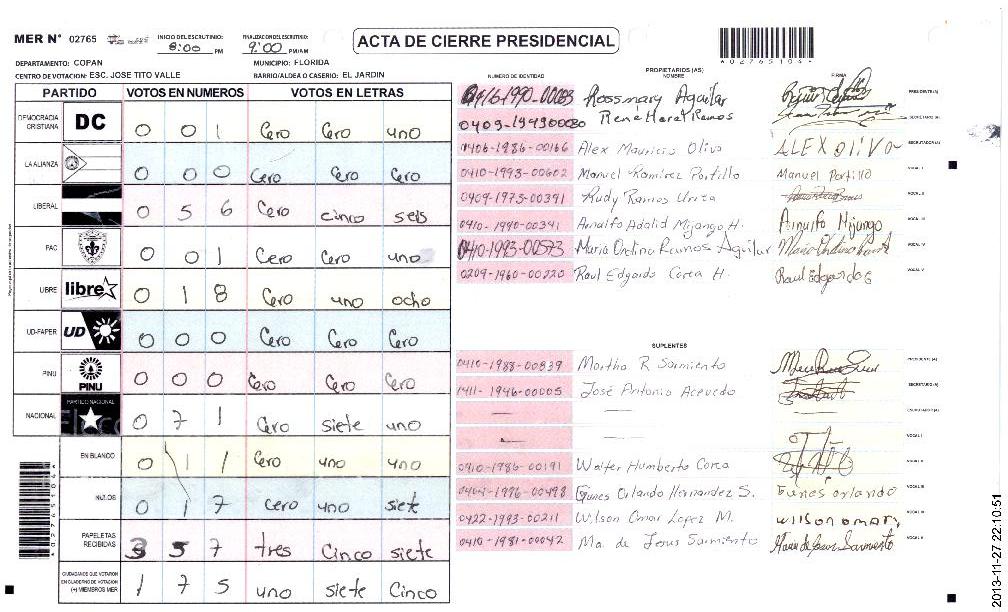 MER N° 02765 INICIO DEL ESCRUTINIO: 8:00 PM FINALIZACION DEL ESCRUTINIO: 9:00 PM/AM
ACTA DE CIERRE PRESIDENCIAL
A027651064
DEPARTAMENTO: COPAN MUNICIPIO: FLORIDA
CENTRO DE VOTACION: ESC. JOSE TITO VALLE BARRIO/ALDEA O CASERIO: EL JARDIN
PARTIDO VOTOS EN NUMEROS VOTOS EN LETRAS
DEMOCRACIA CRISTIANA DC 0 0 1 Cero Cero uno
LA ALIANZA 0 0 0 Cero Cero Cero
LIBERAL 0 5 6 Cero cinco seis
PAC 0 0 1 Cero Cero uno
LIBRE libre 0 1 8 Cero uno ocho
UD-FAPER UD 0 0 0 Cero Cero Cero
PINU PINU 0 0 0 Cero Cero Cero
NACIONAL PARTIDO NACIONAL 0 7 1 Cero siete uno
EN BLANCO 0 1 1 Cero uno uno
NULOS 0 1 7 Cero uno siete
PAPELETAS RECIBIDAS 3 5 7 tres Cinco siete
CIUDADANOS QUE VOTARON EN CUADERNO DE VOTACION (+) MIEMBROS MER 1 7 5 uno siete Cinco
A027651064
NUMERO DE IDENTIDAD PROPIETARIOS (AS) NOMBRE FIRMA
1990-00083 Rossmary Aguilar PRESIDENTE(A)
0409- René Ramos SECRETARIO(A)
0406-1986-00166 Alex Mauricio Oliva ALEX OLIVA ESCRUTADOR(A)
0410-1993-00602 Manuel Ramirez Portillo Manuel Portillo VOCAL I
0409-1975-00391 Rudy Ramos Urita VOCAL II
0410-1990-00391 Arnulfo Adalid Mijango H. Arnulfo Mijango VOCAL III
0410-1993-00573 Maria Ondina Ramos Aguilar VOCAL IV
0209-1960-00220 Raul Edgardo Corea H. Raul Edgardo VOCAL V
SUPLENTES
0410-1988-00839 Martha R Sarmiento PRESIDENTE(A)
1411-1946-00005 José Antonio Acevedo SECRETARIO(A)
ESCRUTADOR(A)
VOCAL I
0410-1986-00191 Walter Humberto Corea VOCAL II
1996-00498 Funes Orlando Hernandez S. Funes orlando VOCAL III
0422-1993-00211 Wilson Omar Lopez M. wilson omar VOCAL IV
0410-1981-00042 Ma. de Jesus Sarmiento Maria de Jesus Sarmiento VOCAL V
2013-11-27 22:10:51